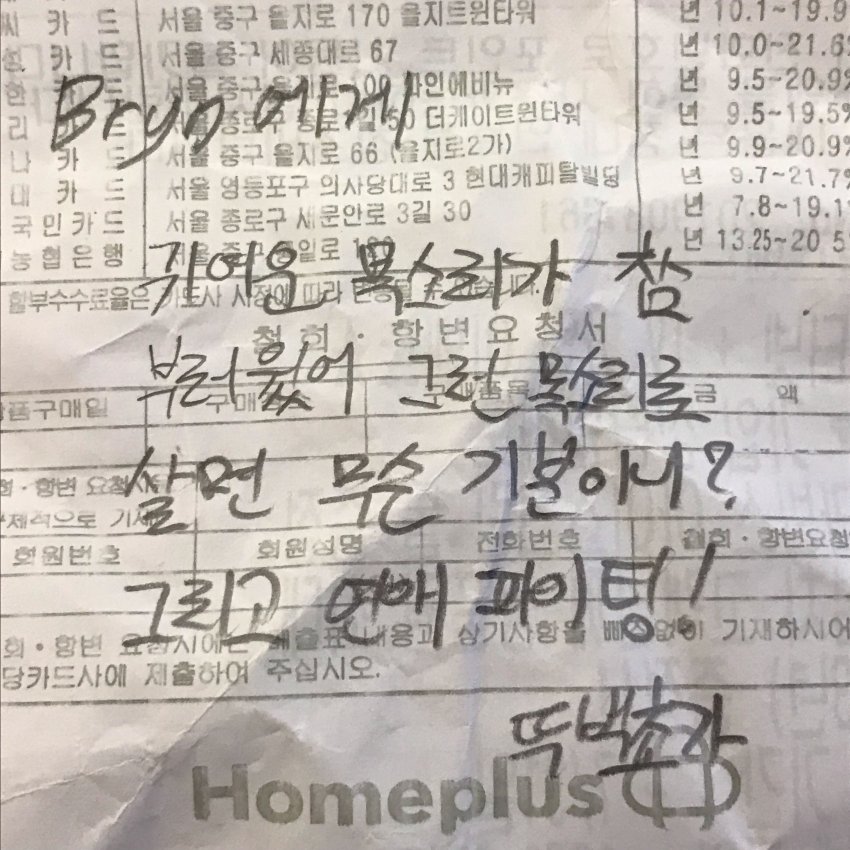 씨 카 드 서울 중구 을지로 170 을지트윈타워 년 10.1~19.9
카 드 서울 중구 세종대로 67 년 10.0~21.6
한 서울 중구 을지로 100 파인에비뉴 년 9.5~20.9%
Bryn에게
리 서울 종로구 종로 1길 50 더케이트윈타워 년 9.5~19.5%
나 카 드 서울 중구 을지로 66 (을지로2가) 년 9.9~20.9%
대 카 드 서울 영등포구 의사당대로 3 현대캐피탈빌딩 년 9.7~21.7%
국민카드 서울 종로구 새문안로 3길 30 년 7.8~19.1
농협은행 서울 년 13.25~20.5
귀여운 목소리가 참
할부수수료율은 카드사 사정에 따라 변동될 수 있습니다.
철회·항변요청서
부러웠어 그런 목소리로
품구매일 금 액
살면 무슨 기분이니?
회원번호 회원성명 전화번호 철회·항변요청
그리고 연애 파이팅!
회·항변 요청시에는 매출표 내용과 상기사항을 빠짐없이 기재하시어
당카드사에 제출하여 주십시오.
뚝백초자
Homeplus